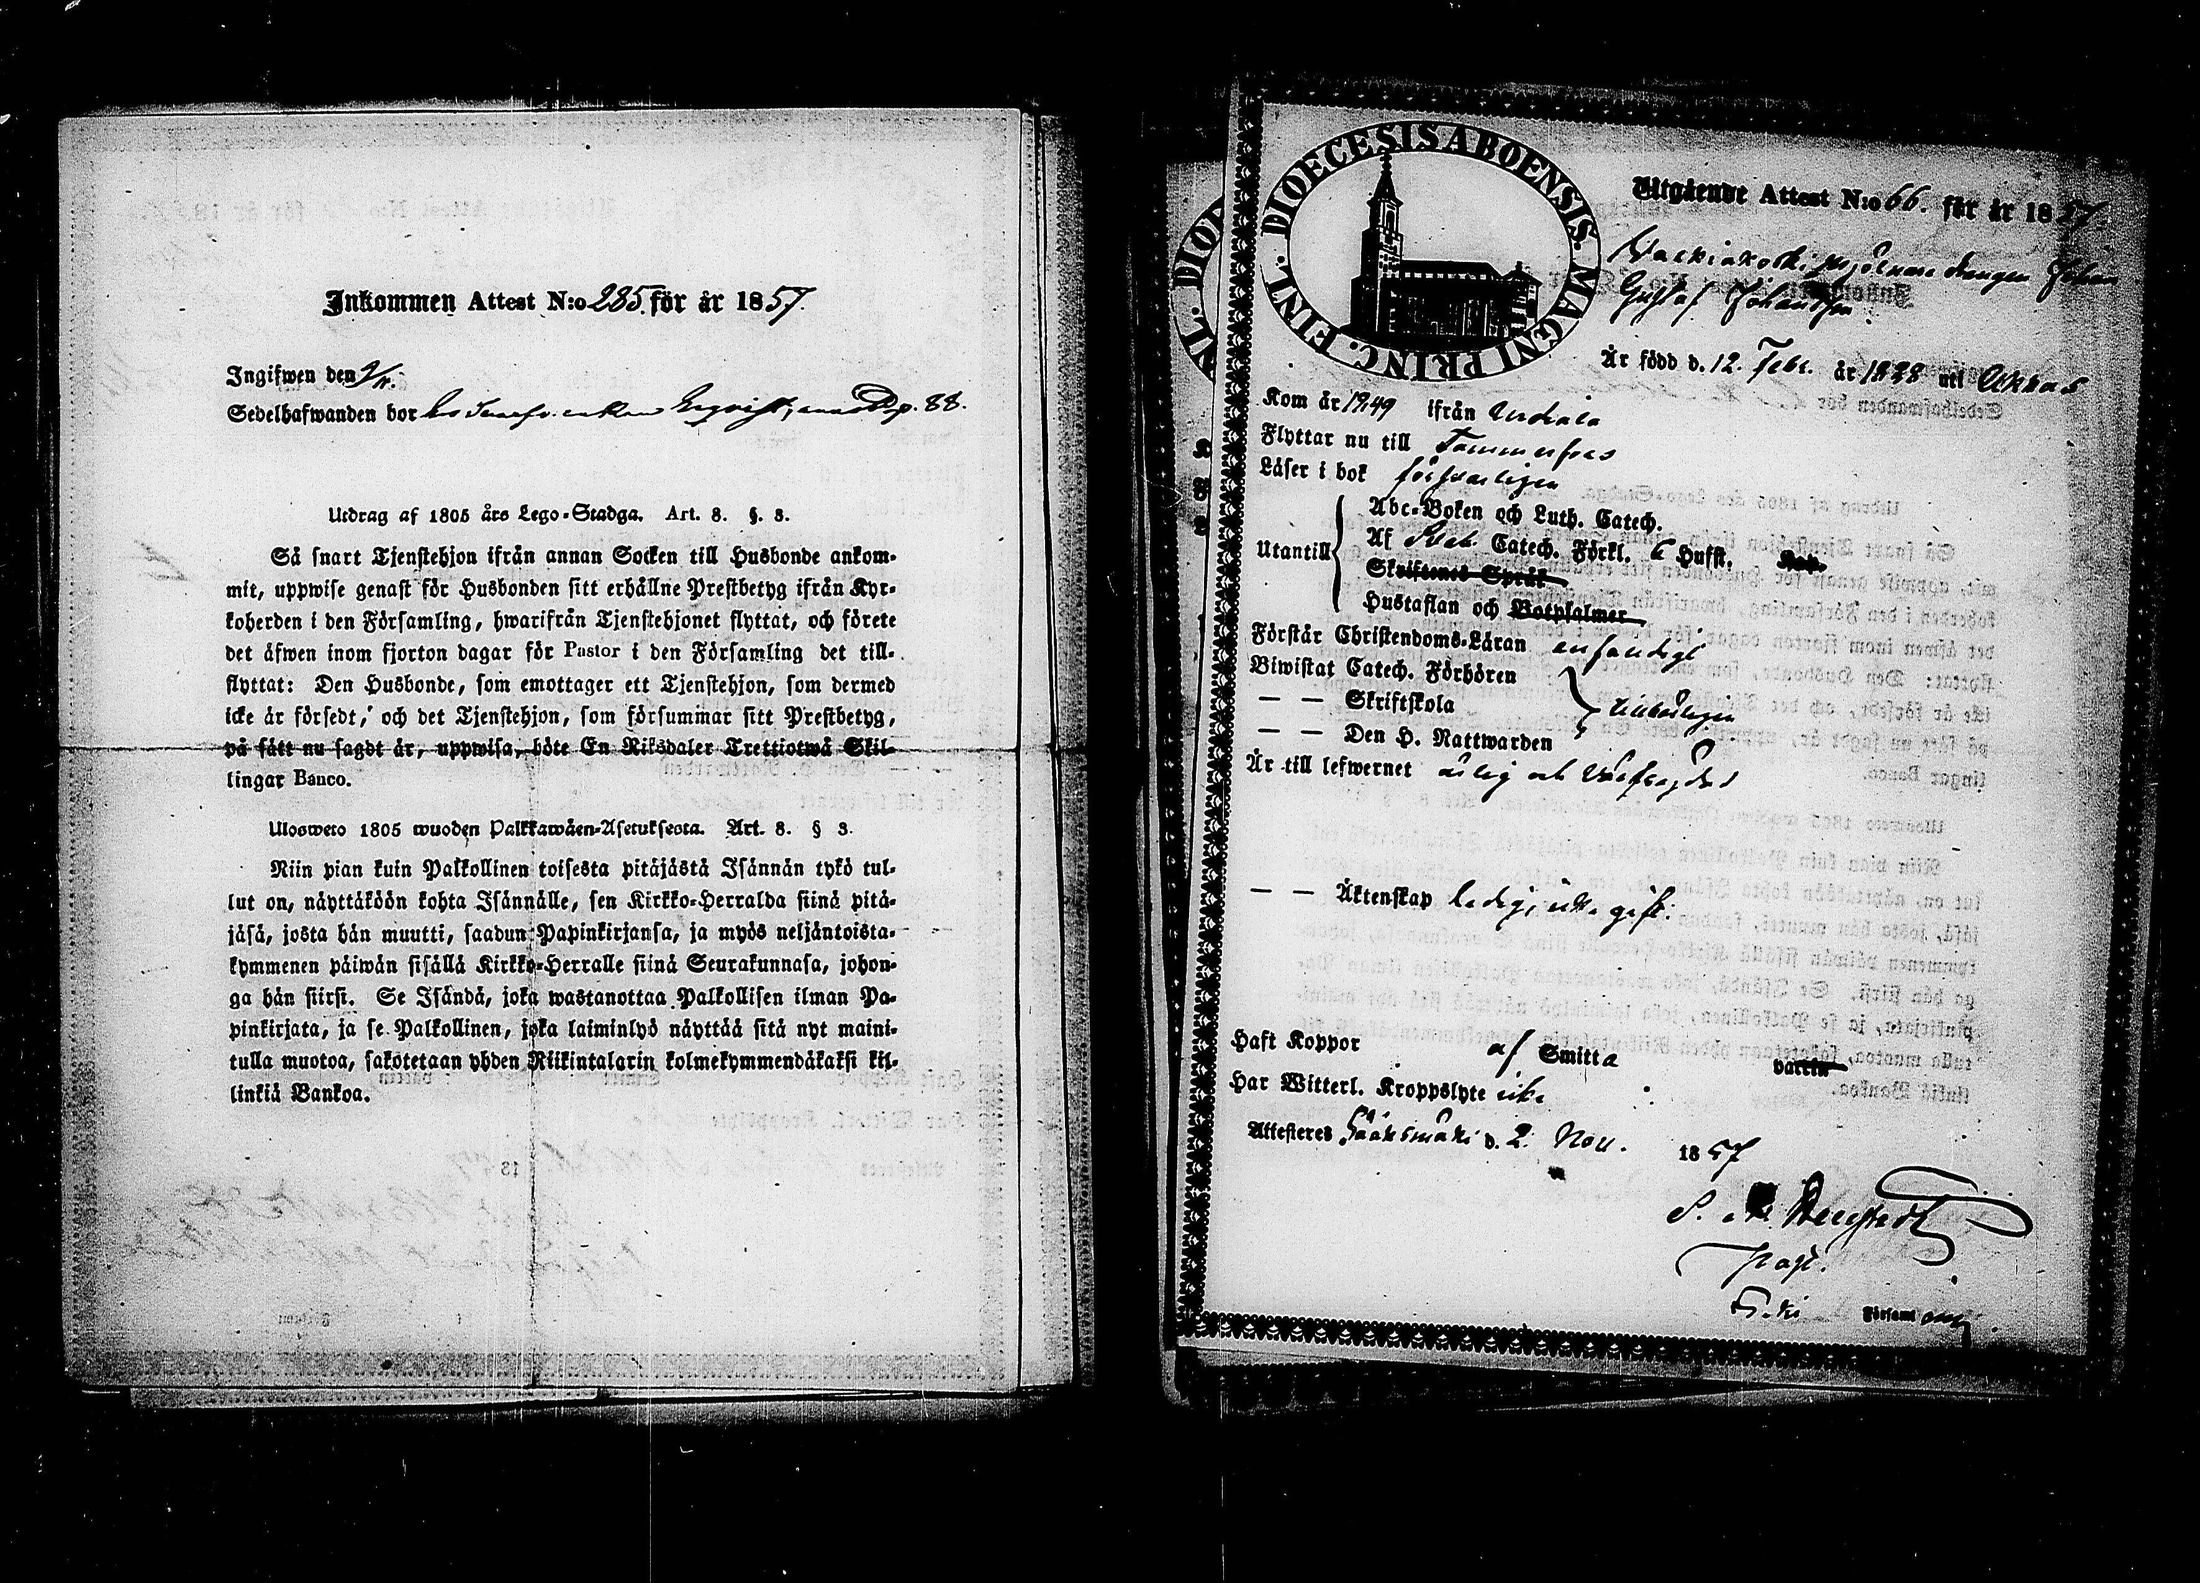 Inkommen Attest N:o 285. för år 1857.
Ingifwen den 9/11.
Sedelhafwanden bor hos enkan p. 88.
Utdrag af 1805 års Lego-Stadga. Art. 8. §. 3.
Så snart Tjenstehjon ifrån annan Socken till Husbonde ankom-
mit, uppwise genast för Husbonden sitt erhållne Prestbetyg ifrån Kyr-
koherden i den Församling, hwarifrån Tjenstehjonet flyttat, och förete
det äfwen inom fjorton dagar för Pastor i den Församling det till-
flyttat: Den Husbonde, som emottager ett Tjenstehjon, som dermed
icke är försedt, och det Tjenstehjon, som försummar sitt Prestbetyg,
på sätt nu sagdt är, uppwisa, böte En Riksdaler Trettiotwå Skil-
lingar Banco.
Ulosweto 1805 wuoden Palkkawäen-Asetuksesta. Art. 8. § 3.
Niin pian kuin Palkollinen toisesta pitäjästä Isännän tykö tul-
lut on, näyttäköön kohta Isännälle, sen Kirkko-Herralda siinä pitä-
jäsä, josta hän muutti, saadun Papinkirjansa, ja myös neljäntoista-
kymmenen päiwän sisällä Kirkko-Herralle siinä Seurakunnasa, johon-
ga hän siirsi. Se Isändä, joka wastanottaa Palkollisen ilman Pa-
pinkirjata, ja se Palkollinen, joka laiminlyö näyttää sitä nyt maini-
tulla muotoa, sakotetaan yhden Riikintalarin kolmekymmendäkaksi kil-
linkiä Bankoa.
DIOECESIS ABOENSIS. MAGNI PRINC. FINL.
Utgående Attest N:o 66. för år 1857.
Walkiakoski drengen Johan
Gustaf Johansson
Är född d. 12. Febr. år 1828 uti Akkas
Kom år 1849 ifrån Urdiala
Flyttar nu till Tammerfors
Läser i bok försvarligen
Utantill
Abc-Boken och Luth. Catech.
Af Catech. Förkl. 6 Hufst.
Skriftenes Språk
Hustaflan och Botpsalmer
Förstår Christendoms-Läran enfaldigt
Biwistat Catech. Förhören
— — Skriftskola tillbörligen
— — Den H. Nattwarden
Är till lefwernet ärlig och välfrägdad
— — Äktenskap ledig, icke gift.
Haft Koppor af Smitta
Har Witterl. Kroppslyte icke
Attesteres Sääksmäki d. 2. Nov. 1857
Past.
Församl